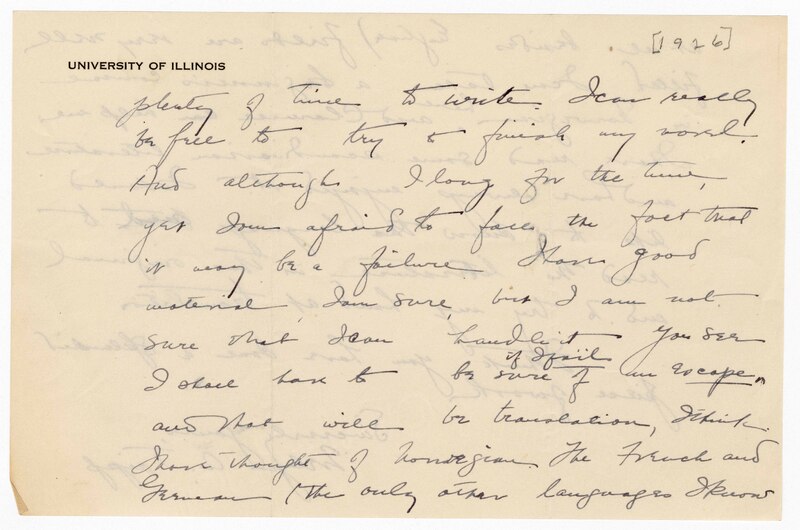 [1926]
UNIVERSITY OF ILLINOIS
plenty of time to write. I can really
be free to try to finish my novel.
And although I long for the time,
yet I am afraid to face the fact that
it may be a failure. I have good
material, I am sure, but I am not
sure that I can handle it. You see
if I fail
I shall have to be sure of an escape,
and that will be translation, I think.
I have thought of Norwegian. The French and
German (the only other languages I know